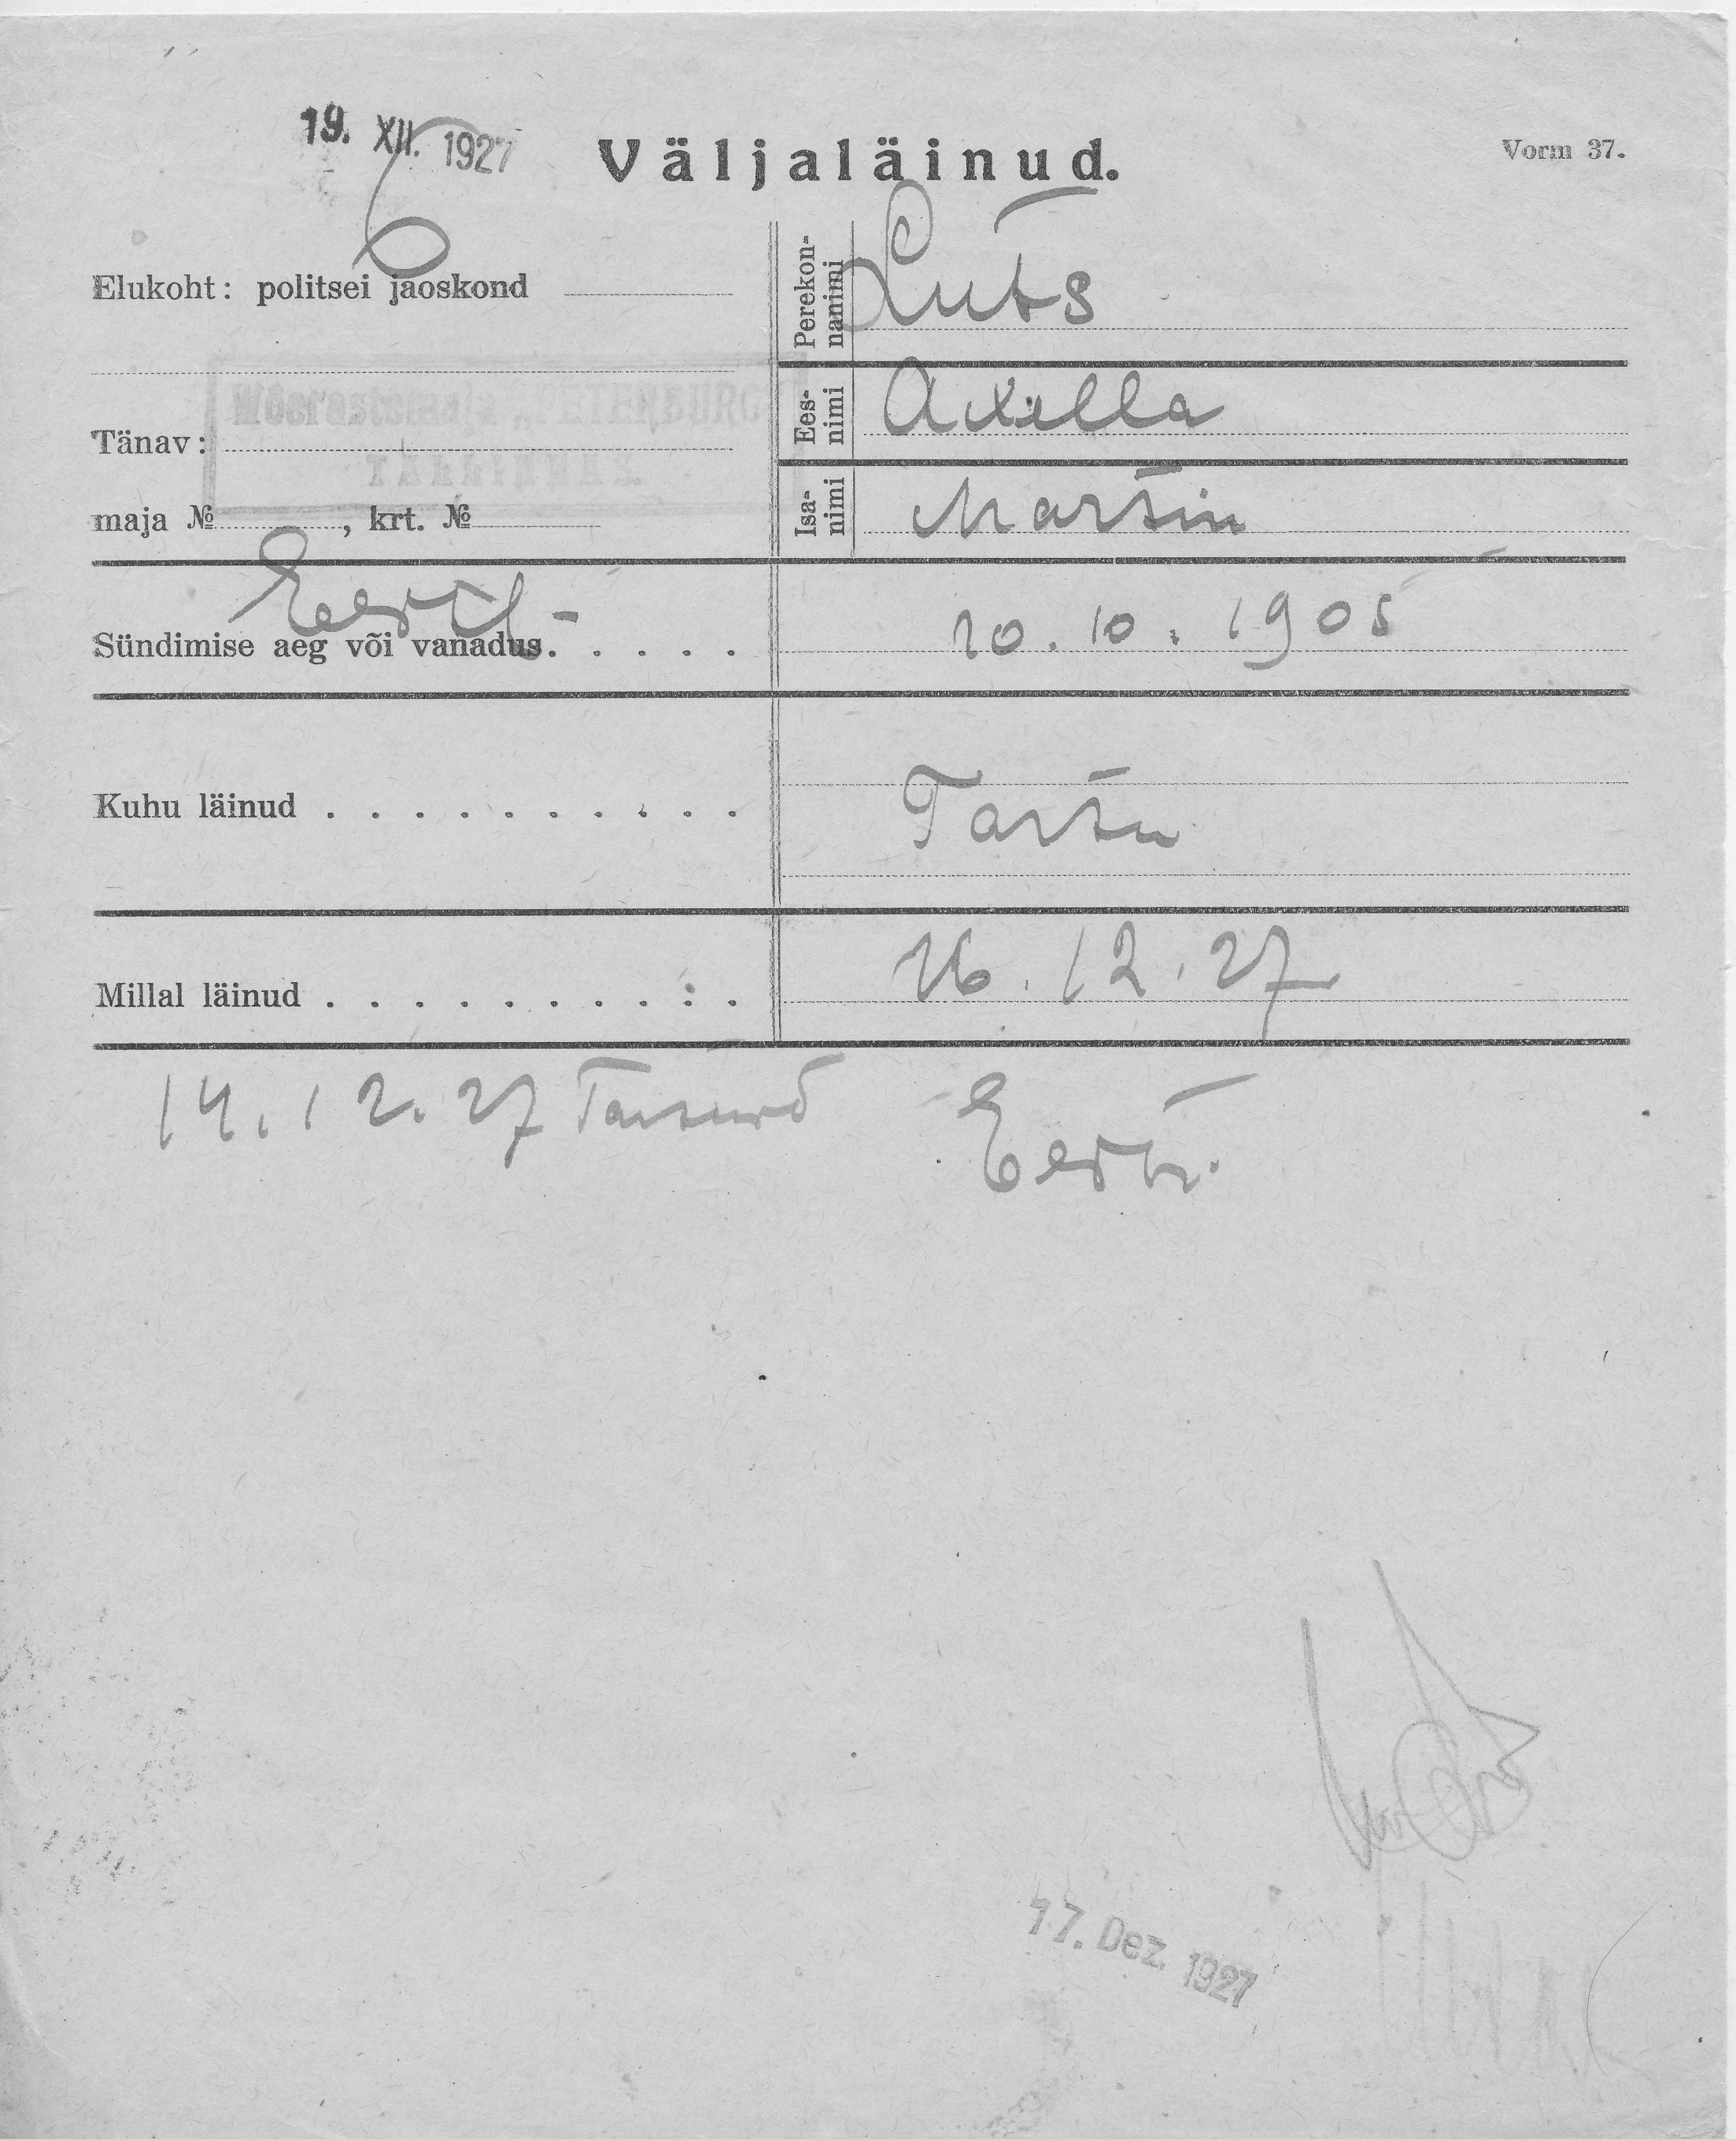 19. XII. 1927
Väljaläinud.
Vorm 37.
Elukoht: politsei jaoskond
Perekon-
nanimi
Luts
Võõrastemaja „PETERBURG
TALLINNAS.
Tänav:
Ees-
nimi
Axella
maja №, krt. №
Isa-
nimi
Martin
Eesti
Sündimise aeg või vanadus. . . . . .
10.10.1905
Kuhu läinud . . . . . . . . . .
Tartu
Millal läinud . . . . . . . . . .
16.12.27
14.12.27 Tartust
Eesti.
17. Dez. 1927